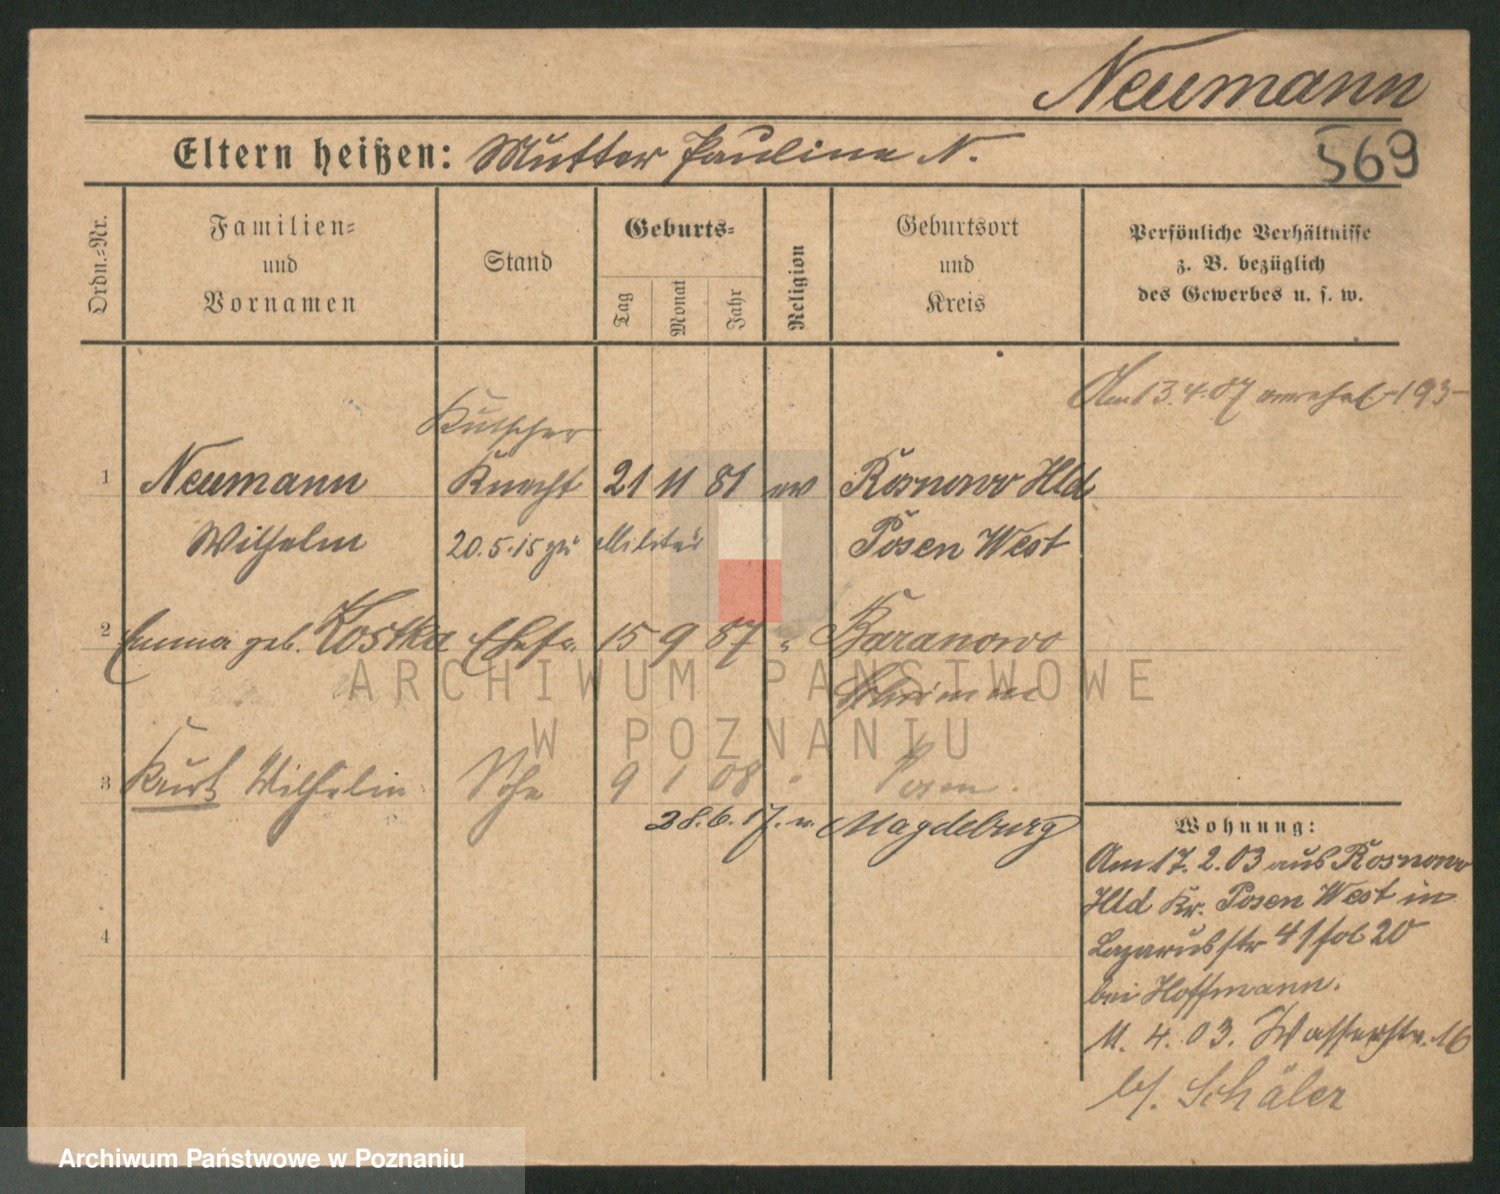 Neumann
Eltern heißen: Mutter Pauline N.
569
Ordn.-Nr.
Familien- und Vornamen
Stand
Geburts-
Tag Monat Jahr
Religion
Geburtsort und Kreis
Persönliche Verhältnisse
z. B. bezüglich
des Gewerbes u. s. w.
Am 13.4.07 -193-
Kutscher
1 Neumann Knecht 21 11 81 ev Rosnowo Hld
Wilhelm 20.5.15 zu Militär Posen West
2 Emma geb. Kostka Ehefr. 15 9 87 " Baranowo
Schrimm
3 Kurt Wilhelm Sohn 9 1 08 " Posen.
28.6.17. n. Magdeburg
4
Wohnung:
Am 17.2.03 aus Rosnowo
Hld Kr. Posen West in
Lazarusstr 41 fol 20
bei Hoffmann.
11.4.03. Wasserstr. 16
b/. Schäler
ARCHIWUM PAŃSTWOWE
W POZNANIU
Archiwum Państwowe w Poznaniu